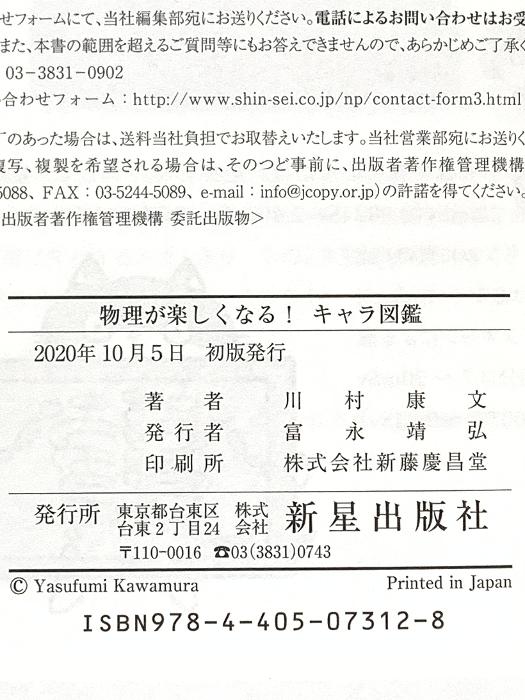 せフォームにて、当社編集部宛にお送りください。電話によるお問い合わせはお受
また、本書の範囲を超えるご質問等にもお答えできませんので、あらかじめご了承く
03-3831-0902
合わせフォーム：http://www.shin-sei.co.jp/np/contact-form3.html
のあった場合は、送料当社負担でお取替えいたします。当社営業部宛にお送りく
複写、複製を希望される場合は、そのつど事前に、出版者著作権管理機構
5088、FAX：03-5244-5089、e-mail：info@jcopy.or.jp)の許諾を得てください。
出版者著作権管理機構 委託出版物＞
物理が楽しくなる！ キャラ図鑑
2020年10月5日 初版発行
著者 川村康文
発行者 富永靖弘
印刷所 株式会社新藤慶昌堂
発行所 東京都台東区台東2丁目24 株式会社 新星出版社
〒110-0016 ☎03(3831)0743
© Yasufumi Kawamura Printed in Japan
ISBN978-4-405-07312-8